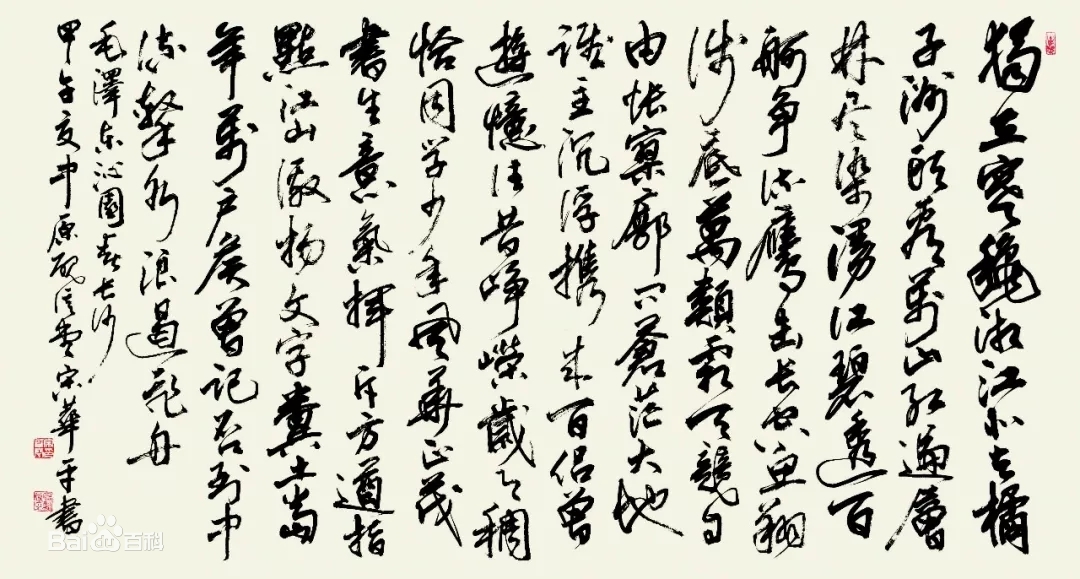 独立寒穐湘江北去橘
子洲头看万山红遍层
林尽染漫江碧透百
舸争流鹰击长空鱼翔
浅底萬類霜天競自
由怅寥廓问蒼茫大地
谁主沉浮携来百侣曾
遊憶往昔峥嵘歲月稠
恰同学少年風華正茂
書生意氣揮斥方遒指
點江山激扬文字糞土当
年萬户侯曾记否到中
流擊水浪遏飞舟
毛澤东沁園春长沙
甲午夏中原宋華平書
Bai百科